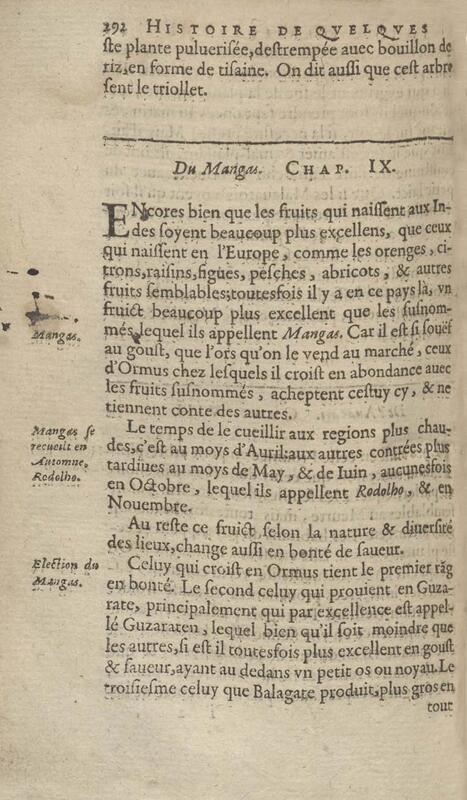 292 HISTOIRE DE QVELQVES
ste plante puluerisée, destrempée auec bouillon de
riz, en forme de tisaine. On dit aussi que cest arbre
sent le triollet.
Du Mangas. CHAP. IX.
ENcores bien que les fruits qui naissent aux In-
des soyent beaucoup plus excellens, que ceux
qui naissent en l'Europe, comme les orenges, ci-
trons, raisins, figues, pesches, abricots, & autres
fruits semblables; toutesfois il y a en ce pays là, vn
fruict beaucoup plus excellent que les susnom-
més, lequel ils appellent Mangas. Car il est si souëf
Mangas.
au goust, que l'ors qu'on le vend au marché, ceux
d'Ormus chez lesquels il croist en abondance auec
les fruits susnommés, acheptent cestuy cy, & ne
tiennent conte des autres.
Mangas se
recueult en
Automne,
Rodolho.
Le temps de le cueillir aux regions plus chau-
des, c'est au moys d'Auril: aux autres contrées plus
tardiues au moys de May, & de Iuin, aucunesfois
en Octobre, lequel ils appellent Rodolho, & en
Nouembre.
Au reste ce fruict selon la nature & diuersité
des lieux, change aussi en bonté de saueur.
Election du
Mangas.
Celuy qui croist en Ormus tient le premier rãg
en bonté. Le second celuy qui prouient en Guza-
rate, principalement qui par excellence est appel-
lé Guzaraten, lequel bien qu'il soit moindre que
les autres, si est il toutesfois plus excellent en goust
& saueur, ayant au dedans vn petit os ou noyau. Le
troisiesme celuy que Balagate produit, plus gros en
tout